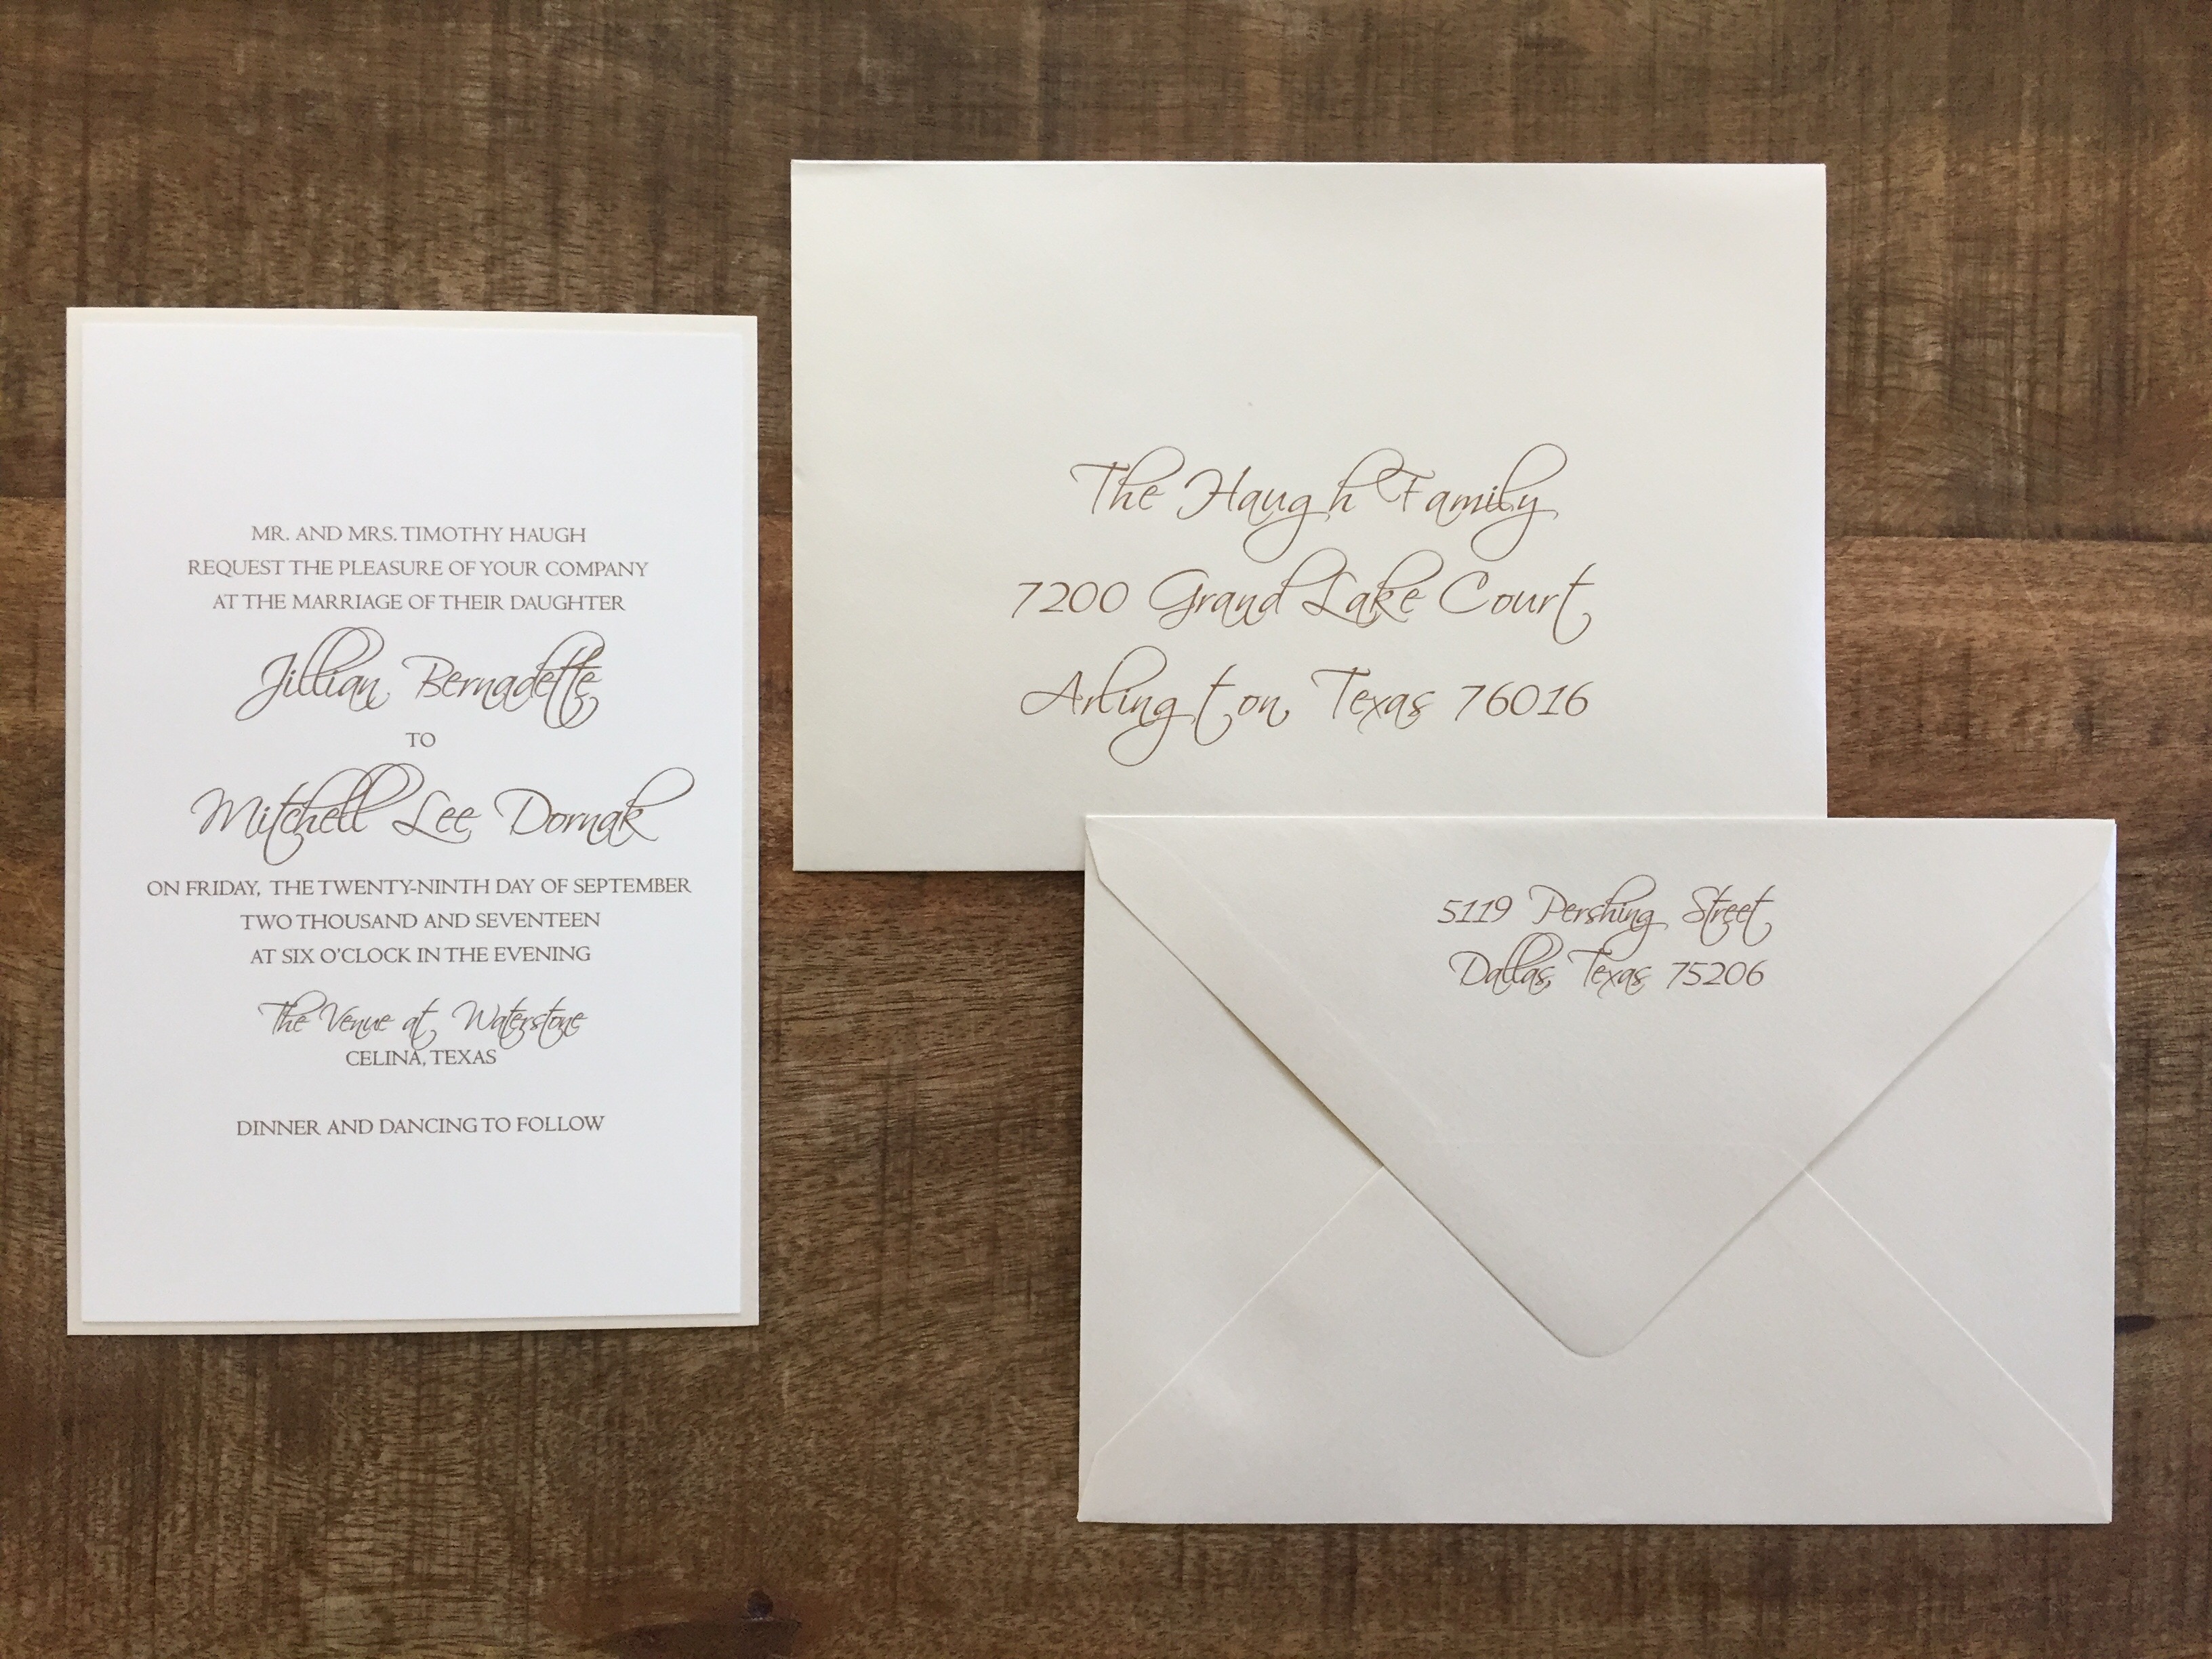 MR. AND MRS. TIMOTHY HAUGH
REQUEST THE PLEASURE OF YOUR COMPANY
AT THE MARRIAGE OF THEIR DAUGHTER
Jillian Bernadette
TO
Mitchell Lee Dornak
ON FRIDAY, THE TWENTY-NINTH DAY OF SEPTEMBER
TWO THOUSAND AND SEVENTEEN
AT SIX O'CLOCK IN THE EVENING
The Venue at Waterstone
CELINA, TEXAS
DINNER AND DANCING TO FOLLOW
The Haugh Family
7200 Grand Lake Court
Arlington, Texas 76016
5119 Pershing Street
Dallas, Texas 75206